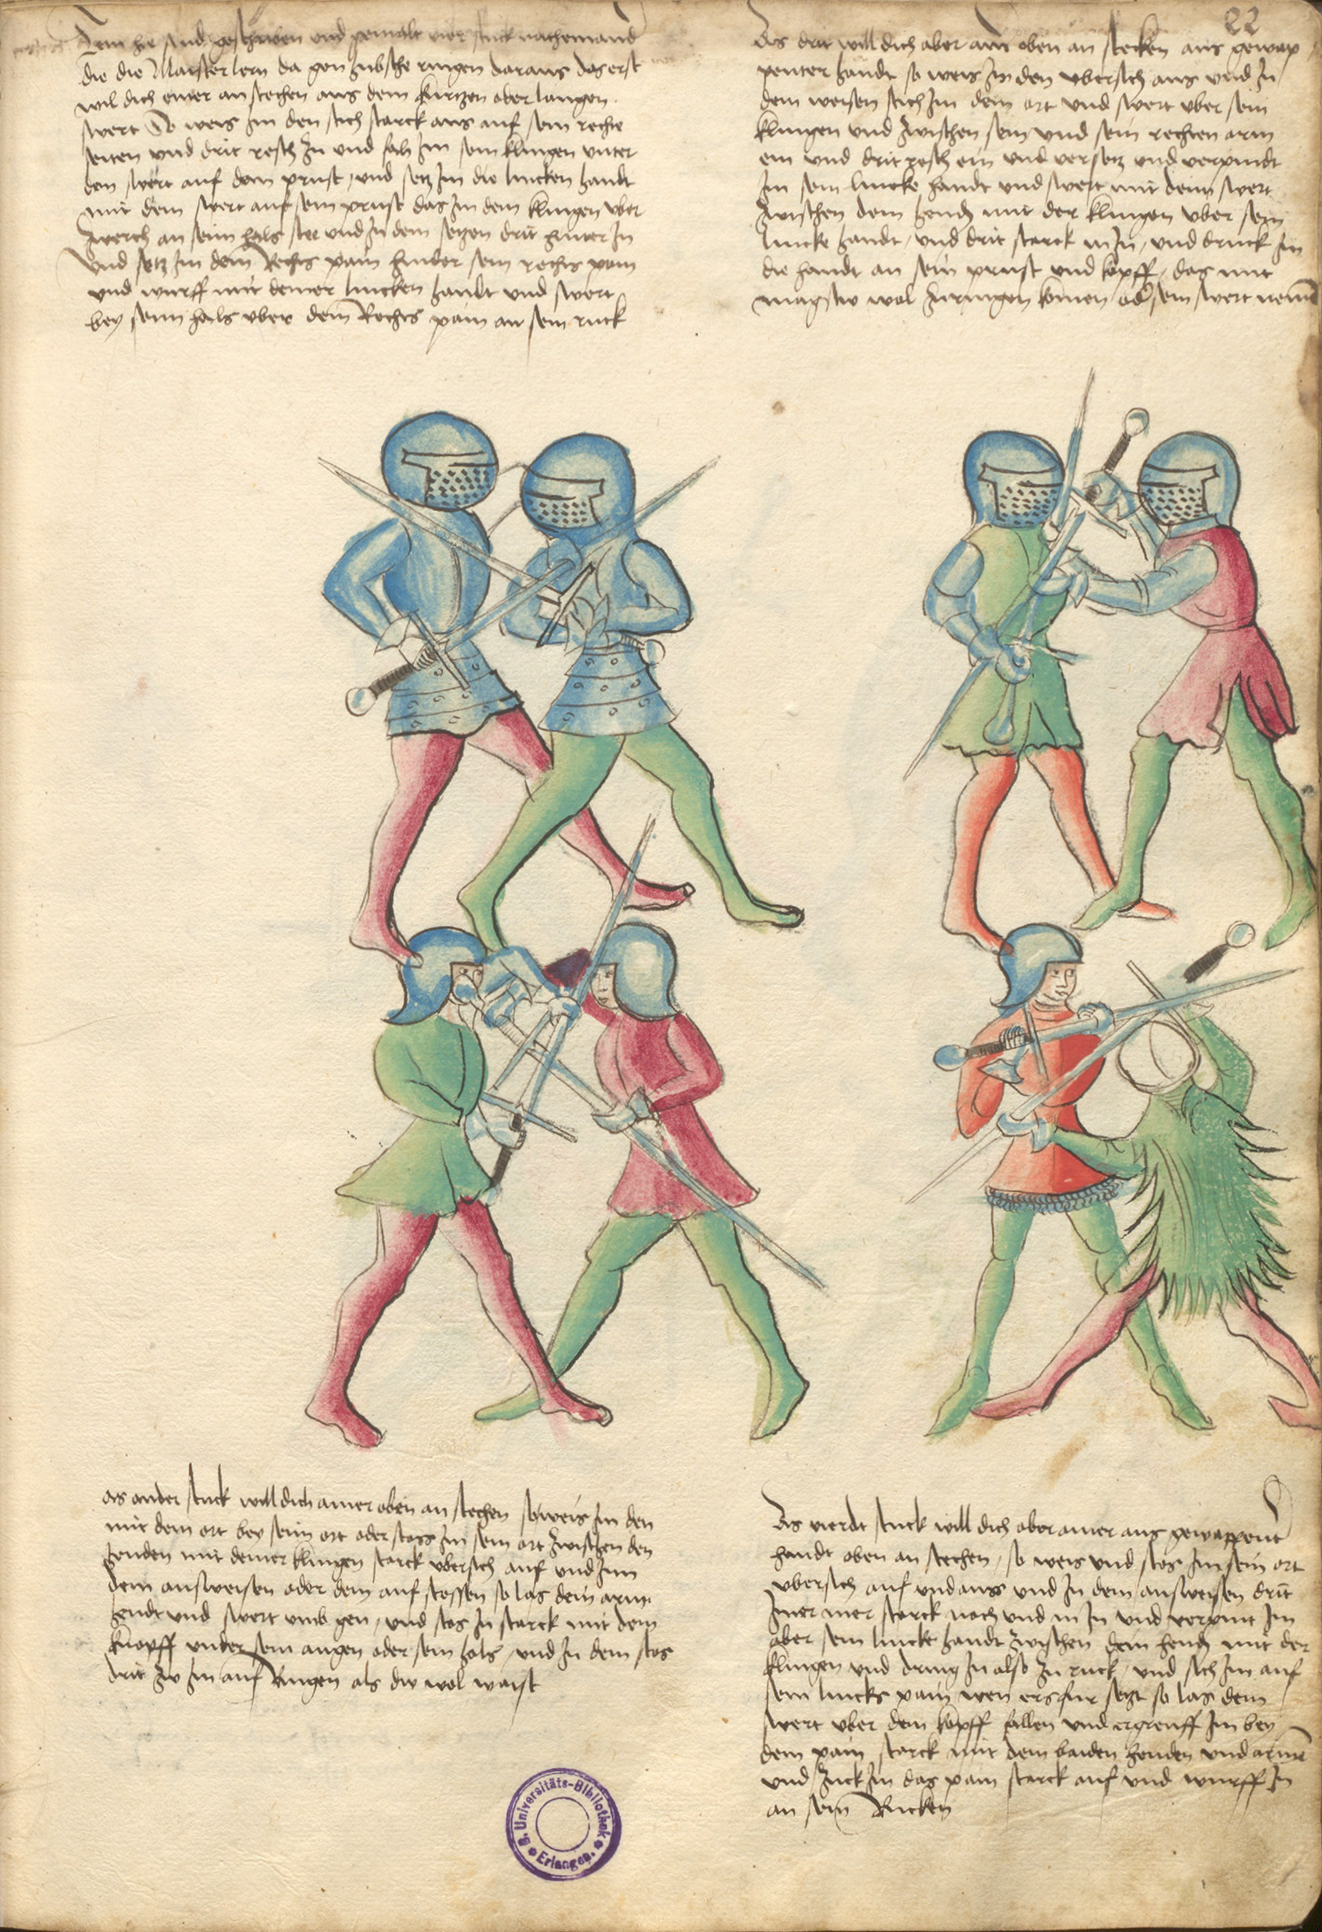 22
Item hie sind geschriben und gemalt vier stuck nacheinand
die die Maister lern da gen hubsche ringen daraus das erst
wil dich einer an stechen aus dem kurtzen ober langen
swert So weis im den stich starck aus auf sein rechte
seiten und drit resch zu und fals im sein klingen unter
den swert auf dem prust und setz im die lincken handt
mit dem swert auf sein prust das im dein klingen uber
zwerch an seim hals stee und in dem setzen drit hinter in
und setz im dein Rechts pain hinder sein rechts pain
und wurff mit deiner lincken handt und swert
bey seim hals uber dein Rechts pain an sein ruck
Das drit will dich aber ains oben an stechen aus gewap
penter handt so weis im den ubersich aus und in
dem weisen stich im dein ort und swert uber sein
klingen und zwischen sein und sein rechten arm
ein und drit resch ein und versetz und verpindt
im sein lincke handt und swert mit deim swert
zwischen dein hendn mit der klingen uber sein
lincke handt und drit starck in in und druck im
die handt an sein prust und kopff das mit
magstw wol zu ringen komen od sein swert nemen
as ander stuck will dich ainer oben an stechen so weis im den
mit dem ort bey seim ort oder stoss im sein ort zwischen den
henden mit deiner klingen starck ubersich auf und inn
dem ausweisen oder dem auf stossen so las dein arm
hendt und swert umb gen und stos in starck mit dem
knopff under sein augen oder sein hals und in dem stos
drit zu im auf Ringen als dw wol waist
Das vierdt stuck will dich aber ainer aus gewappent
handt oben an stechen so weis und stos im sein ort
ubersich auf und aus und in dem ausweisen drit
imer mer starck nach und in in und verpint im
aber sein lincke handt zwischen dein hendn mit der
klingen und dring in also zu ruck und sich im auf
sein lincks pain wen ers fur setzt so las dein
swert uber den kopff fallen und ergreuff im bey
dem pain starck mit dein baiden henden und armen
und zuck im das pain starck auf und wurff in
an sein Rucken
Universitäts-Bibliothek
Erlangen